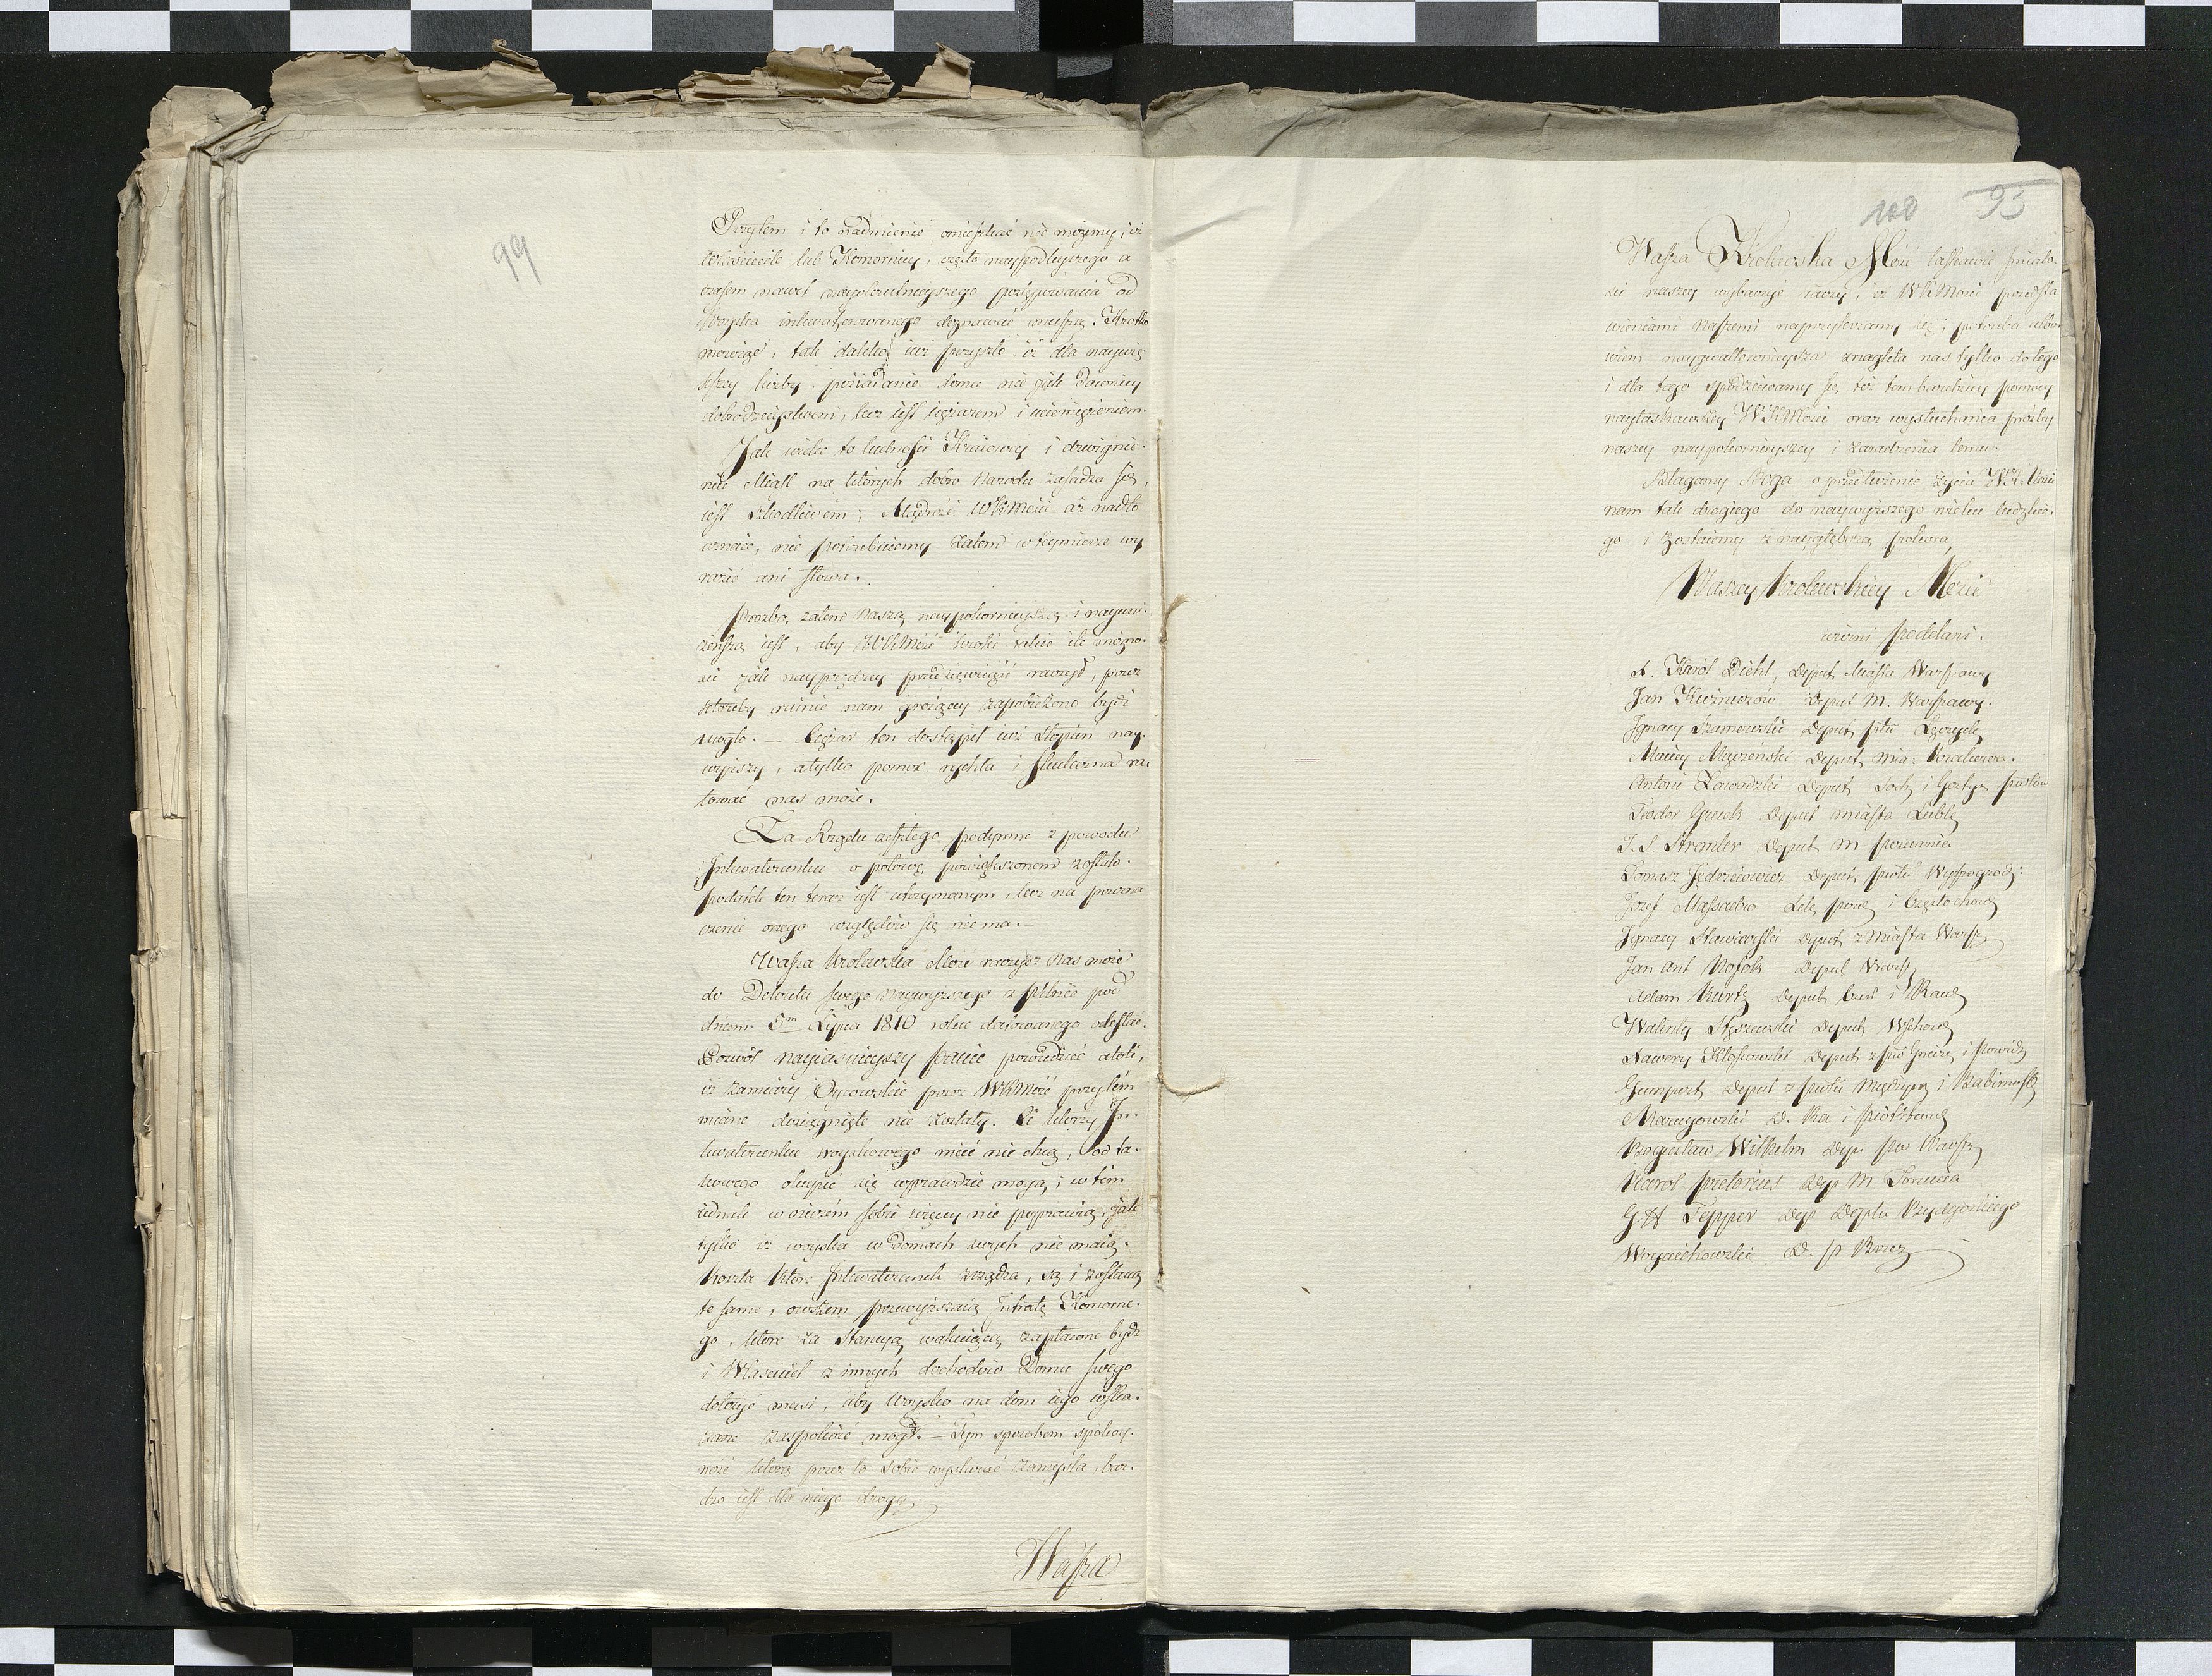 99
Przytem i to nadmienić omieszkać nie możemy, iż
właściciele lub Komornicy, często naypodleyszego a
czasem nawet nayokrutnieyszego postępowania od
Woyska inkwaterowanego doznawać muszą. Krotko
mowiąc, tak daleko iuż przyszło iż dla naywię-
kszey liczby posiadanie domu nie jak dawniey
dobrodzieystwem, lecz iest ciężarem i uciemiężeniem.
Jak wiele to ludności Kraiowey i dzwignie-
nie Miast na których dobro Narodu zasadza się,
iest szkodliwem; Mądrość WKMości aż nadto
uznaie, nie potrzebuiemy zatem w teymierze wy
razić ani słowa.
Prozbą zatem naszą naypokornieyszą i nayuni-
żeńszą iest, aby WKMość kroki takie ile możno-
ści jak nayprędzey przedsięwziąść raczył, przez
ktoreby ruinie nam grożącey zapobieżono bydź
mogło. — Ciężar ten dostąpił iuż stopień nay-
wyższy, a tylko pomoc rychła i skuteczna ra
tować nas może.
Za Rządu zeszłego podymne z powodu
Inkwaterunku o połowę powiększonem zostało.
podatek ten teraz iest utrzymanym, lecz na przezna
czenie onego względów się nie ma. —
Wasza Krolewska Mość raczysz nas może
do Dekretu swego naywyższego z Pilnic pod
dniem 5m Lipca 1810 roku datowanego odesłać.
Pozwól nayiasnieyszy Panie powiedzieć atoli,
iż zamiary Oycowskie przez WKMość przytém
miane dosiągnięte nie zostały. Ci ktorzy In-
kwaterunku woyskowego mieć nie chcą, od ta-
kowego okupić się wprawdzie mogą; w tém
iednak w niczém sobie więcey nie poprawią, jak
tylko iż woyska w Domach swych nie maią.
Koszta ktore Inkwaterunek zrządza, są i zostaną
te same, owszem przewyższaią Intratę Komorne-
go, ktore za Stancyą wakuiącą zapłacone bydź
i Właściciel z innych dochodów Domu swego
dołożyć musi, aby Woysko na dom iego wska-
zane zaspokoić mogł. — Tym sposobem spokoy-
ność ktorą przez to sobie wyskurać zamyśla, bar-
dzo iest dla niego drogą.
Wasza
100 93
Wasza Krolewska Mość łaskawie śmiało-
ści naszey wybaczyć raczy, iż WKMości przedsta
wieniami naszemi naprzykrzamy się; potrzeba albo-
wiem naygwałtownieysza znagla nas tylko do tego
i dla tego spodziewamy się też tem bardziey pomocy
nayłaskawszey WKMości oraz wysłuchania prośby
naszey naypokornieyszey i zaradzenia temu.
Błagamy Boga o przedłużenie życia WKMości
nam tak drogiego do naywyższego wieku ludzkie-
go i zostaiemy z naygłębszą pokorą
Waszey Krolewskiey Mości
wierni poddani.
F. Karol Diehl, Deput Miasta Warszawy
Jan Deput M. Warszawy.
Ignacy Deput Pttu
Deput Mia:
Antoni Zawadzki Deput Soch i Gosty Powiatów
Deput miasta Lubl
Deput M Poznania
Tomasz Jędrzeiowicz Deput Powtu Wyszogrodz:
Jozef i Częstochow
Ignacy Stawiarski Deput z Miasta Warsz
Jan Ant Deput Warsz
Adam Kurtz Deput i Raw
Walenty Deput Wschow
Xawery Kłossowski Deput z Pow Gnieź i Powidz
Gumpert Deput z Powtu Międzyrz i Babimosts
D. Ra i
Bogusław Wilhelm Dep. Pow Warsz
Karol Pretorius Dep M Torunia
Tepper Dep Deptu Bydgoskiego
Woyciechowski D. P Brzez